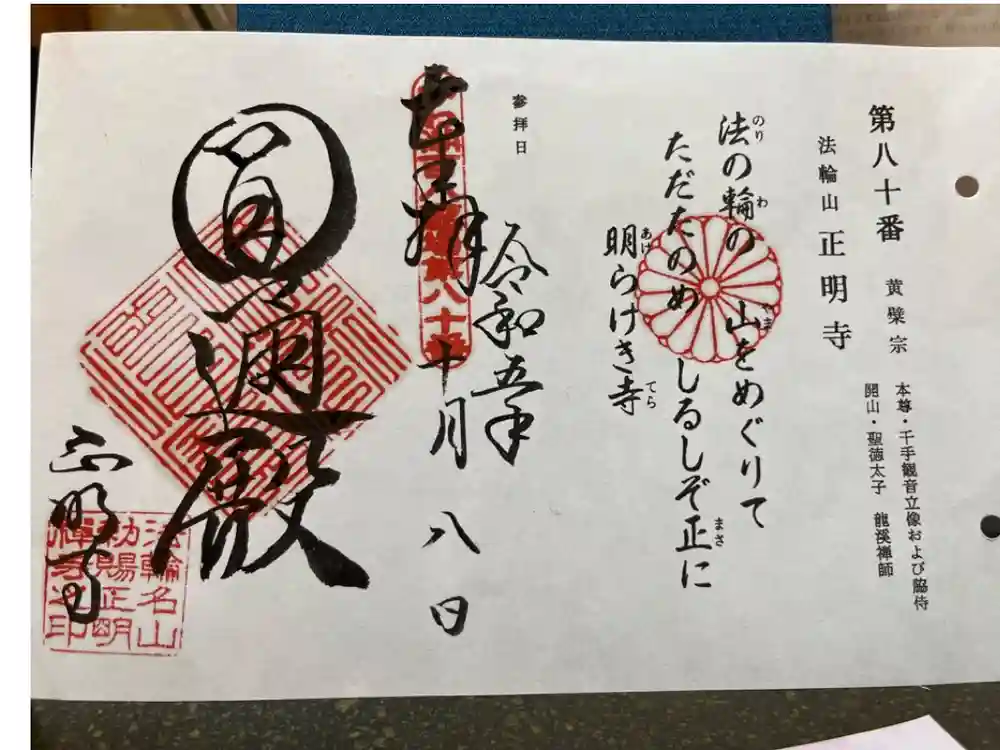 第八十番 黄檗宗
本尊・千手観音立像および脇侍
開山・聖徳太子 龍溪禅師
法輪山 正明寺
法の輪の 山をめぐりて
のり わ やま
ただたのめ しるしぞ正に
まさ
明らけき寺
あけ てら
参拝日
令和五年
奉拝 十月八日
圓通殿
正明寺
法輪名山
勅賜正明
禅寺之印